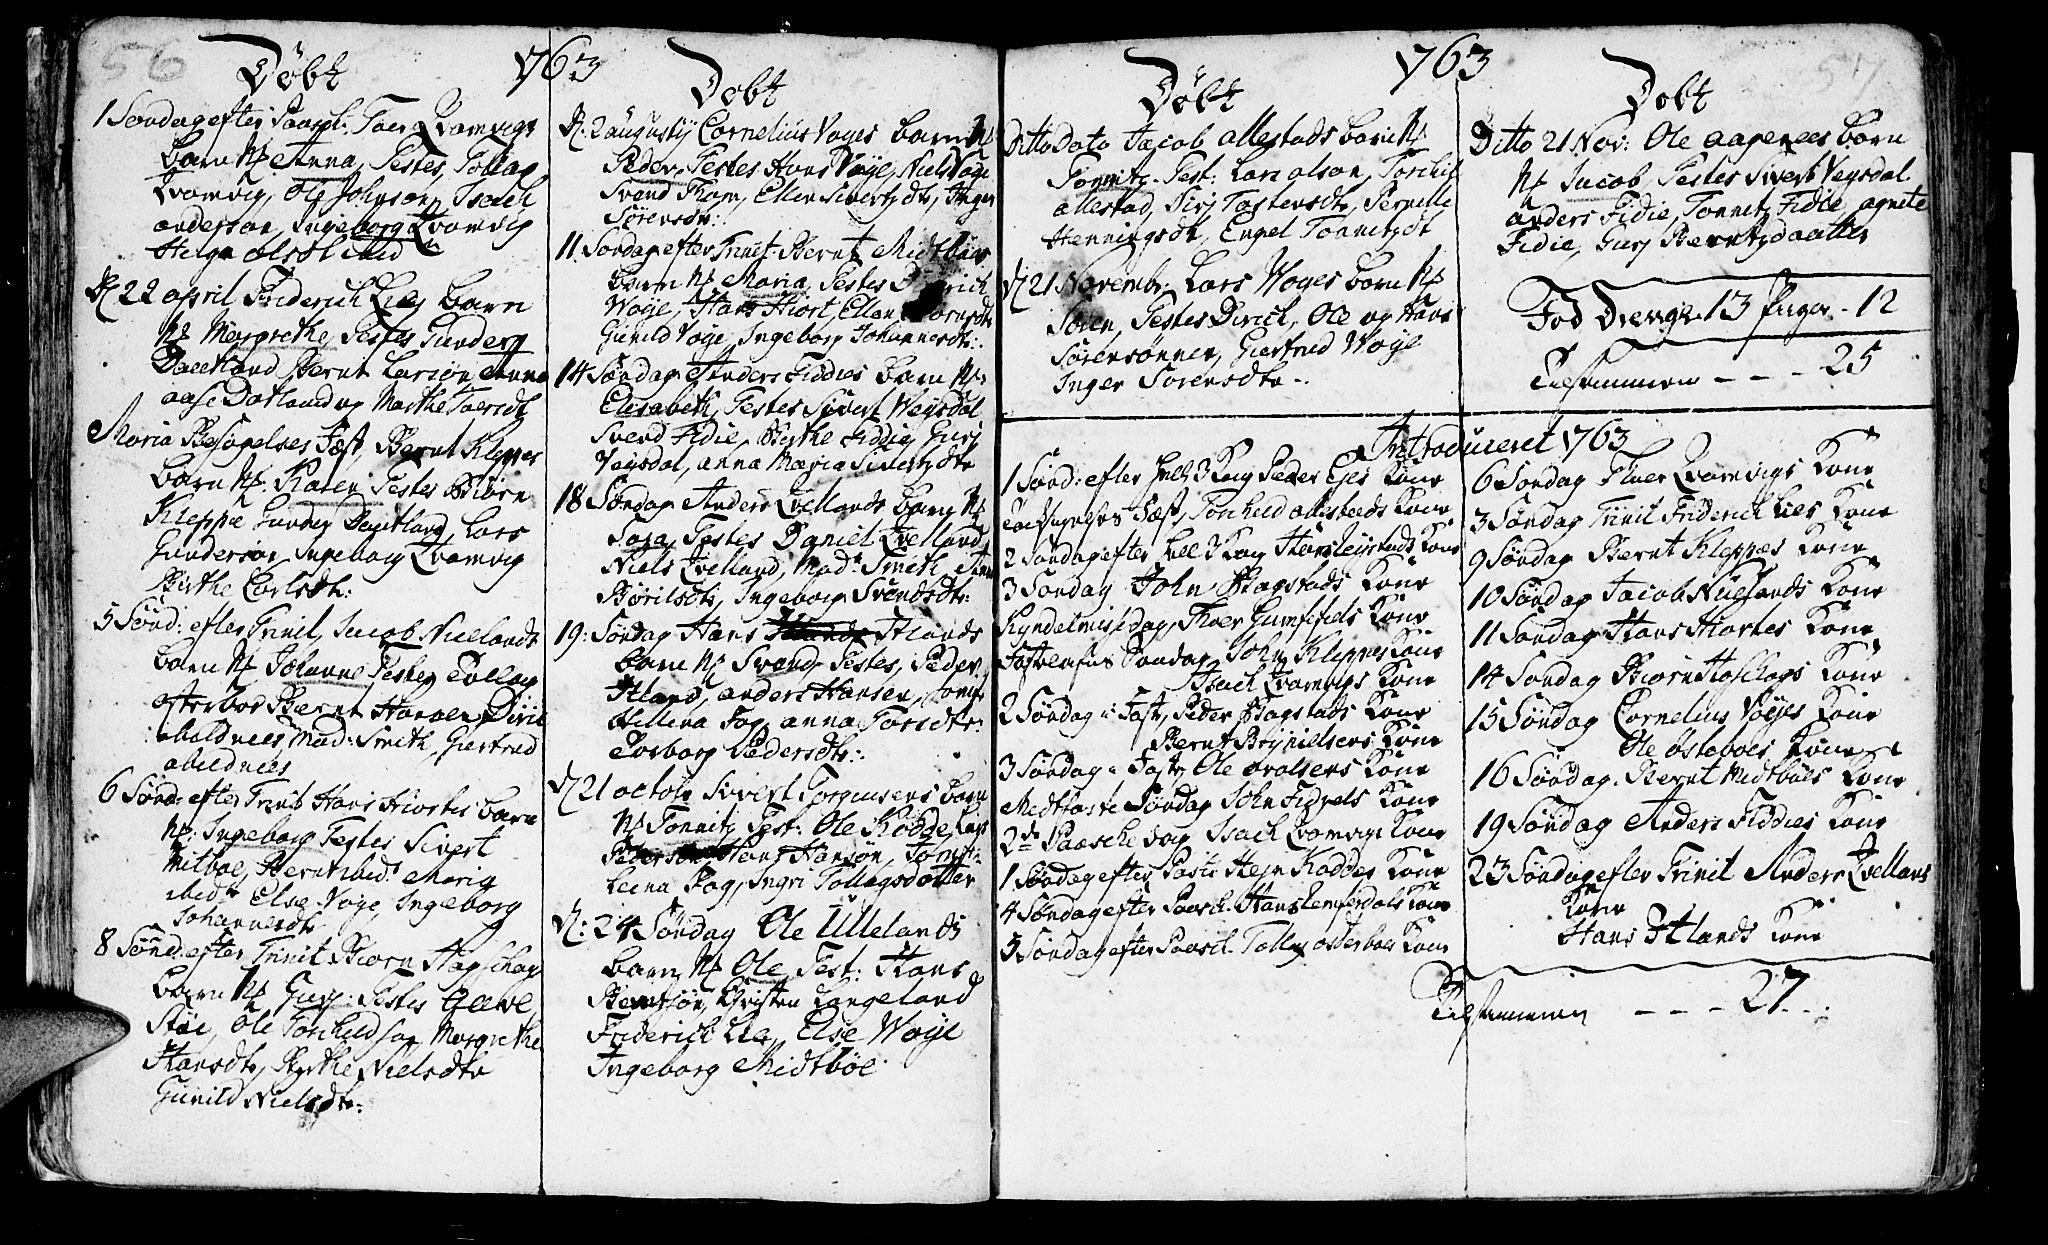 56
Döbt
1763
1 Søndag efter Paasch: Toer Qvamvigs
barn Nf Anna, Testes, Tollag
Qvamvig, Ole Johnsøn, Isach
anderson, Ingeborg Qvamvig
Helga
D 22 april Friderich Lies barn
Nf Margrethe, Testes Gunder
Bernt Larsøn Anna
aase Datland og Marthe Toersdt
Maria Besøgelses Fæst, Bernt Kleppes
barn Nf. Karen Testes Biørn
Kleppe Gunder Dautland, Lars
Gundersøn, Ingeborg Qvamvig
Birthe Carlsdt:
5 Sønd: efter Trinit, Jacob Nuelands
barn Nf Johanne Testes Tollag
østerboe Bernt Hanven, Siri
abildnees Mad: Smith, Giertrud
abildnees
6 Sønd: efter Trinit Hans Hiortes barn
Nf: Ingeborg Testes Sivert
Mitboe, Bernt Maria
Else Voge, Ingeborg
Johannesdt
8 Sønd: efter Trinit Biørn Hogschags
barn Nf Guri: Testes Gave
Støe, Ole Torchildsøn Margrethe
Hansdt, Byrthe Nielsdt
Gunild Nielsdt:
Döbt
D: 2 augusty Cornelius Voges barn Nf
Peder, Testes Hans Vøye, Niels Voge
Svend Thom, Ellen Sivertzdt, Inger
Sørensdt:
11. Søndag efter Trinit. Bernt Midtbøes
barn Nf Maria, Testes Diderich
Woye, Hans Hiort, Ellen
Gunild Voye, Ingeborg Johannesdt:
14 Søndag Anders Fiddies barn Nf
Elisabeth, Testes Sivert Weysdal
Svend Fidie, Birthe Fiddie Guri
Veysdal, anna Maria Sivertzdt
18 Søndag Anders Qvellands barn Nf
Sara, Testes Daniel Qvelland,
Niels Qvelland, Mad: Smith
Børilsdt, Ingeborg Svendsdt:
19: Søndag Hans Hlands
barn Nf Svend, Testes, Peder
Hland, anders Hansen,
Hellena Fog, anna Torisdt:
Torborg Pedersdt:
D 21 octobr Sivert Torgiusens barn
Nf Tonnitz Test: Ole Rodde,
Pederson, Hans Hansøn,
Leena Fog, Ingri Tollagsdatter
D: 24 Søndag Ole Ullelands
barn Nf Ole, Test: Hans
Berntsøn, Christen Langeland
Friderich Lie, Else Woye
Ingeborg Midtböe
1763
57
Döbt
Ditto Dato Jacob allestads barn Nf
Tonnitz. Test: Lars olson, Torchil
allestad, Siri Tostensdt, Pernille
Henningsdt, Engel Tonnitzdt
D 21 Novembr: Lars Woges barn Nf
Søren, Testes Dirich, Ole og Hans
Sørensønner, Giertrud Woye
Inger Sorensdt
Döbt
Ditto 21 Nov: Ole aagenees barn
Nf Jacob, Testes Sivert Veysdal
anders Fidie, Tonnitz Fidie, agnete
Fidie, Guri Berntzdaatter
Fød Drenge 13 Piger - 12
Tilsammen - - - 25
Introduceret 1763
1 Sønd: efter Hell 3 Kong Peder Eies Kone
Fæst, Torchild allestads Kone
2 Søndag efter Hell 3 Kong Hans Leystads Kone
3 Søndag John Bagstads Kone
Kyndelmisse Dag, Thoer Kone
Fastelafns Søndag John Kleppes Kone
Isach Qvamvigs Kone
2 Søndag i Fast, Peder Bagstads Kone
Bernt Brynielsens Kone
3 Søndag i Fast, Ole Kone
Midtfaste Søndag John Kone
2den Paasche Dag Isach Qvamvigs Kone
1 Søndag efter Paasc: Roddes Kone
4 Søndag efter Paasch. Hans Kone
5 Søndag efter Paasch: Tollag østerboes Kone
6 Søndag Thoer Qvamvigs Kone
3 Søndag Trinit Friderich Lies Kone
9 Søndag Bernt Kleppes Kone
10 Søndag Jacob Nuelands Kone
11 Søndag Hans Hiortes Kone
14 Søndag Biørn Hogschags Kone
15 Søndag Cornelius Voges Kone
Ole østeboes Kone
16 Søndag. Bernt Midtbøes Kone
19 Søndag Anders Fiddies Kone
23 Søndag efter Trinit Anders Qvellans
Kone
Hans Hlands Kone
Tilsammen - - - 27.